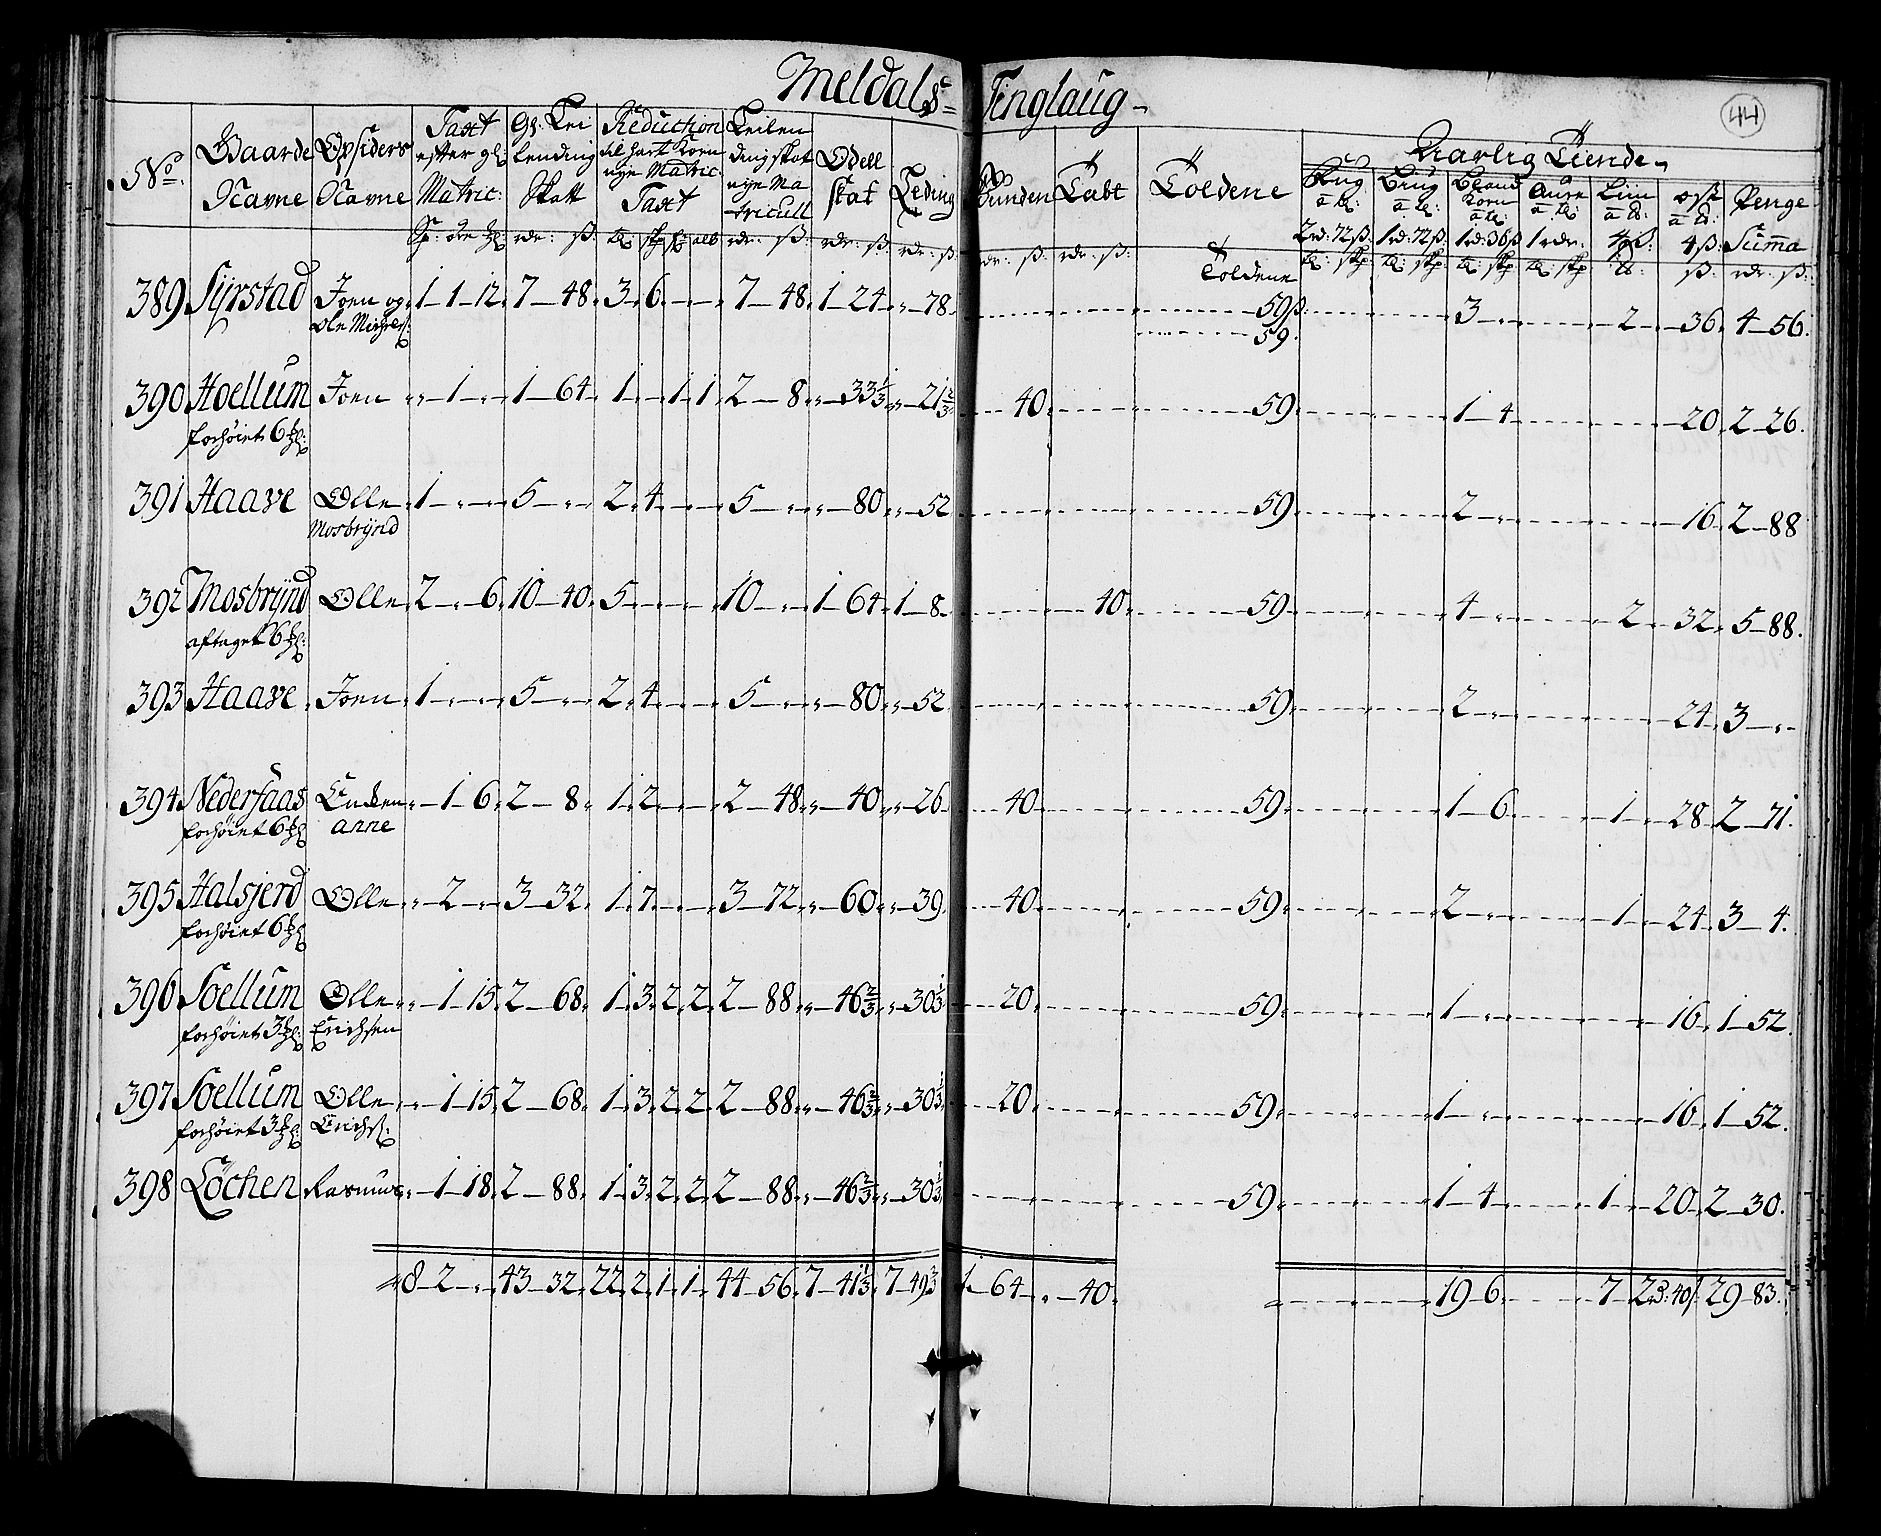 Meldals Tinglaug
44
No. Gaarde Nafne Opsiders Nafne Taxt efter gl: Matric: Gl: Lei lending Skatt Reduction til hart Korn nye Matric: Taxt Leilen dingskat nye Ma tricull Odell skat Leding Tabt Toldene Aarlig Tiende
Penge Summa
389 Syrstad Joen og 1 1 12 7 48 3 6 7 48 1 24 78 59ß 3 2 36 4 56
59
390 Hoellum Joen 1 1 64 1 1 1 2 8 33 1/3 21 2/3 40 59 1 4 20 2 26
forhöiet 6
391 Haave Olle 1 5 2 4 5 80 52 59 2 16 2 88
Mosbrÿnd
392 Mosbrÿnd Olle 2 6 10 40 5 10 1 64 1 8 40 59 4 2 32 5 88
aftaget 6
393 Haave Joen 1 5 2 4 5 80 52 59 2 24 3
394 Nedersaas Encken 1 6 2 8 1 2 2 48 40 26 40 59 1 6 1 28 2 71
forhöiet 6 anne
395 Halsjerd Olle 2 3 32 1 7 3 72 60 39 40 59 2 1 24 3 4
forhöiet 6
396 Soellum Olle 1 15 2 68 1 3 2 2 2 88 46 2/3 30 1/3 20 59 1 16 1 52
forhöiet 3 Erichsen
397 Soellum Olle 1 15 2 68 1 3 2 2 2 88 46 2/3 30 1/3 20 59 1 16 1 52
forhöiet 3 Erichs:
398 Löchen Rasmus 1 18 2 88 1 3 2 2 2 88 46 2/3 30 1/3 59 1 4 1 20 2 30
8 2 43 32 22 2 1 1 44 56 7 41 1/3 7 49 1 64 40 19 6 7 29 83